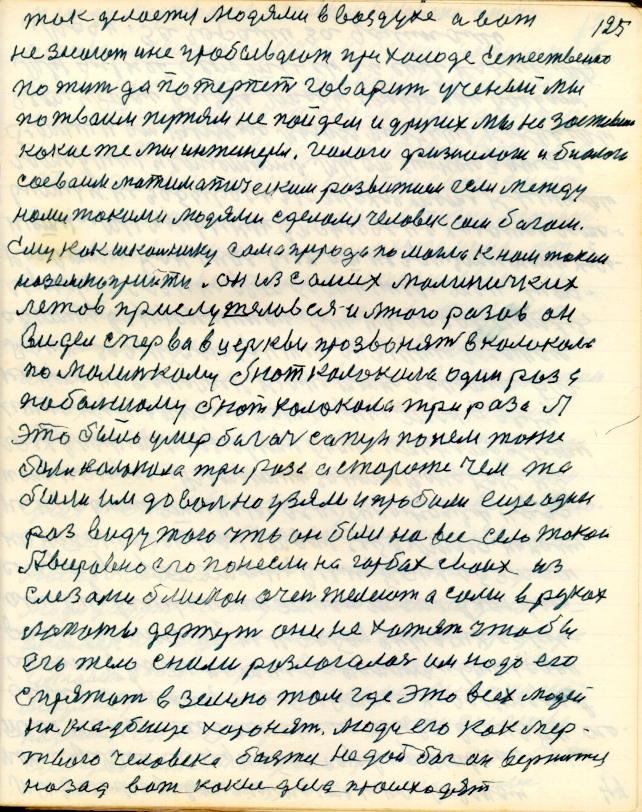 125
так делается людями в воздухе а вот
не знают и не пробывают при холоде естественно
пожит да потерпет говарит ученый мы
по твоим путям не пойдем и других мы не заставим
какие же мы инженеры, геологи физиологи и биологи
со своим матиматическим развитием если между
нами такими людями сделался человек сам багом.
Ему как школнику сама природа помагла к нам таким
на землю прийти. он из самих малиничких
летов прислужялся и много разов он
видел сперва в церкви прозвонят в колокола
по малинкому бют колокола один раз а
по балшому бют колокола три раза А
это было умер багач сапун по нем тоже
били колокола три раза а стороже чем то
были им доволно узяли и пробили еще один
раз виду того что он был на все село такой
А все равно его понесли на горбах своих из
слезами блиские очен жалеют а сами в руках
лопаты держут они не хотят чтобы
его тело гнили разлогалося им надо его
спрятат в землю там где это всех людей
на кладбище хоронят. люди его как мер-
твого человека баятся не дай баг он вернится
назад вот какие дела происходят